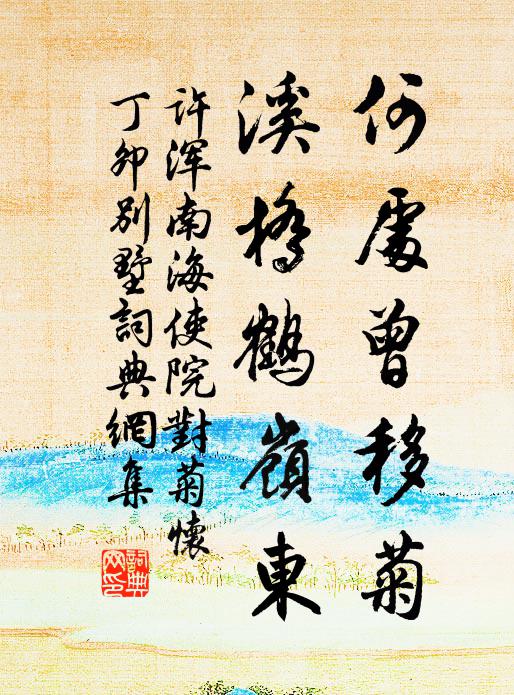 何處曾移菊
溪橋鶴嶺東
許渾南海使院對菊懷
丁卯別墅詞典網集